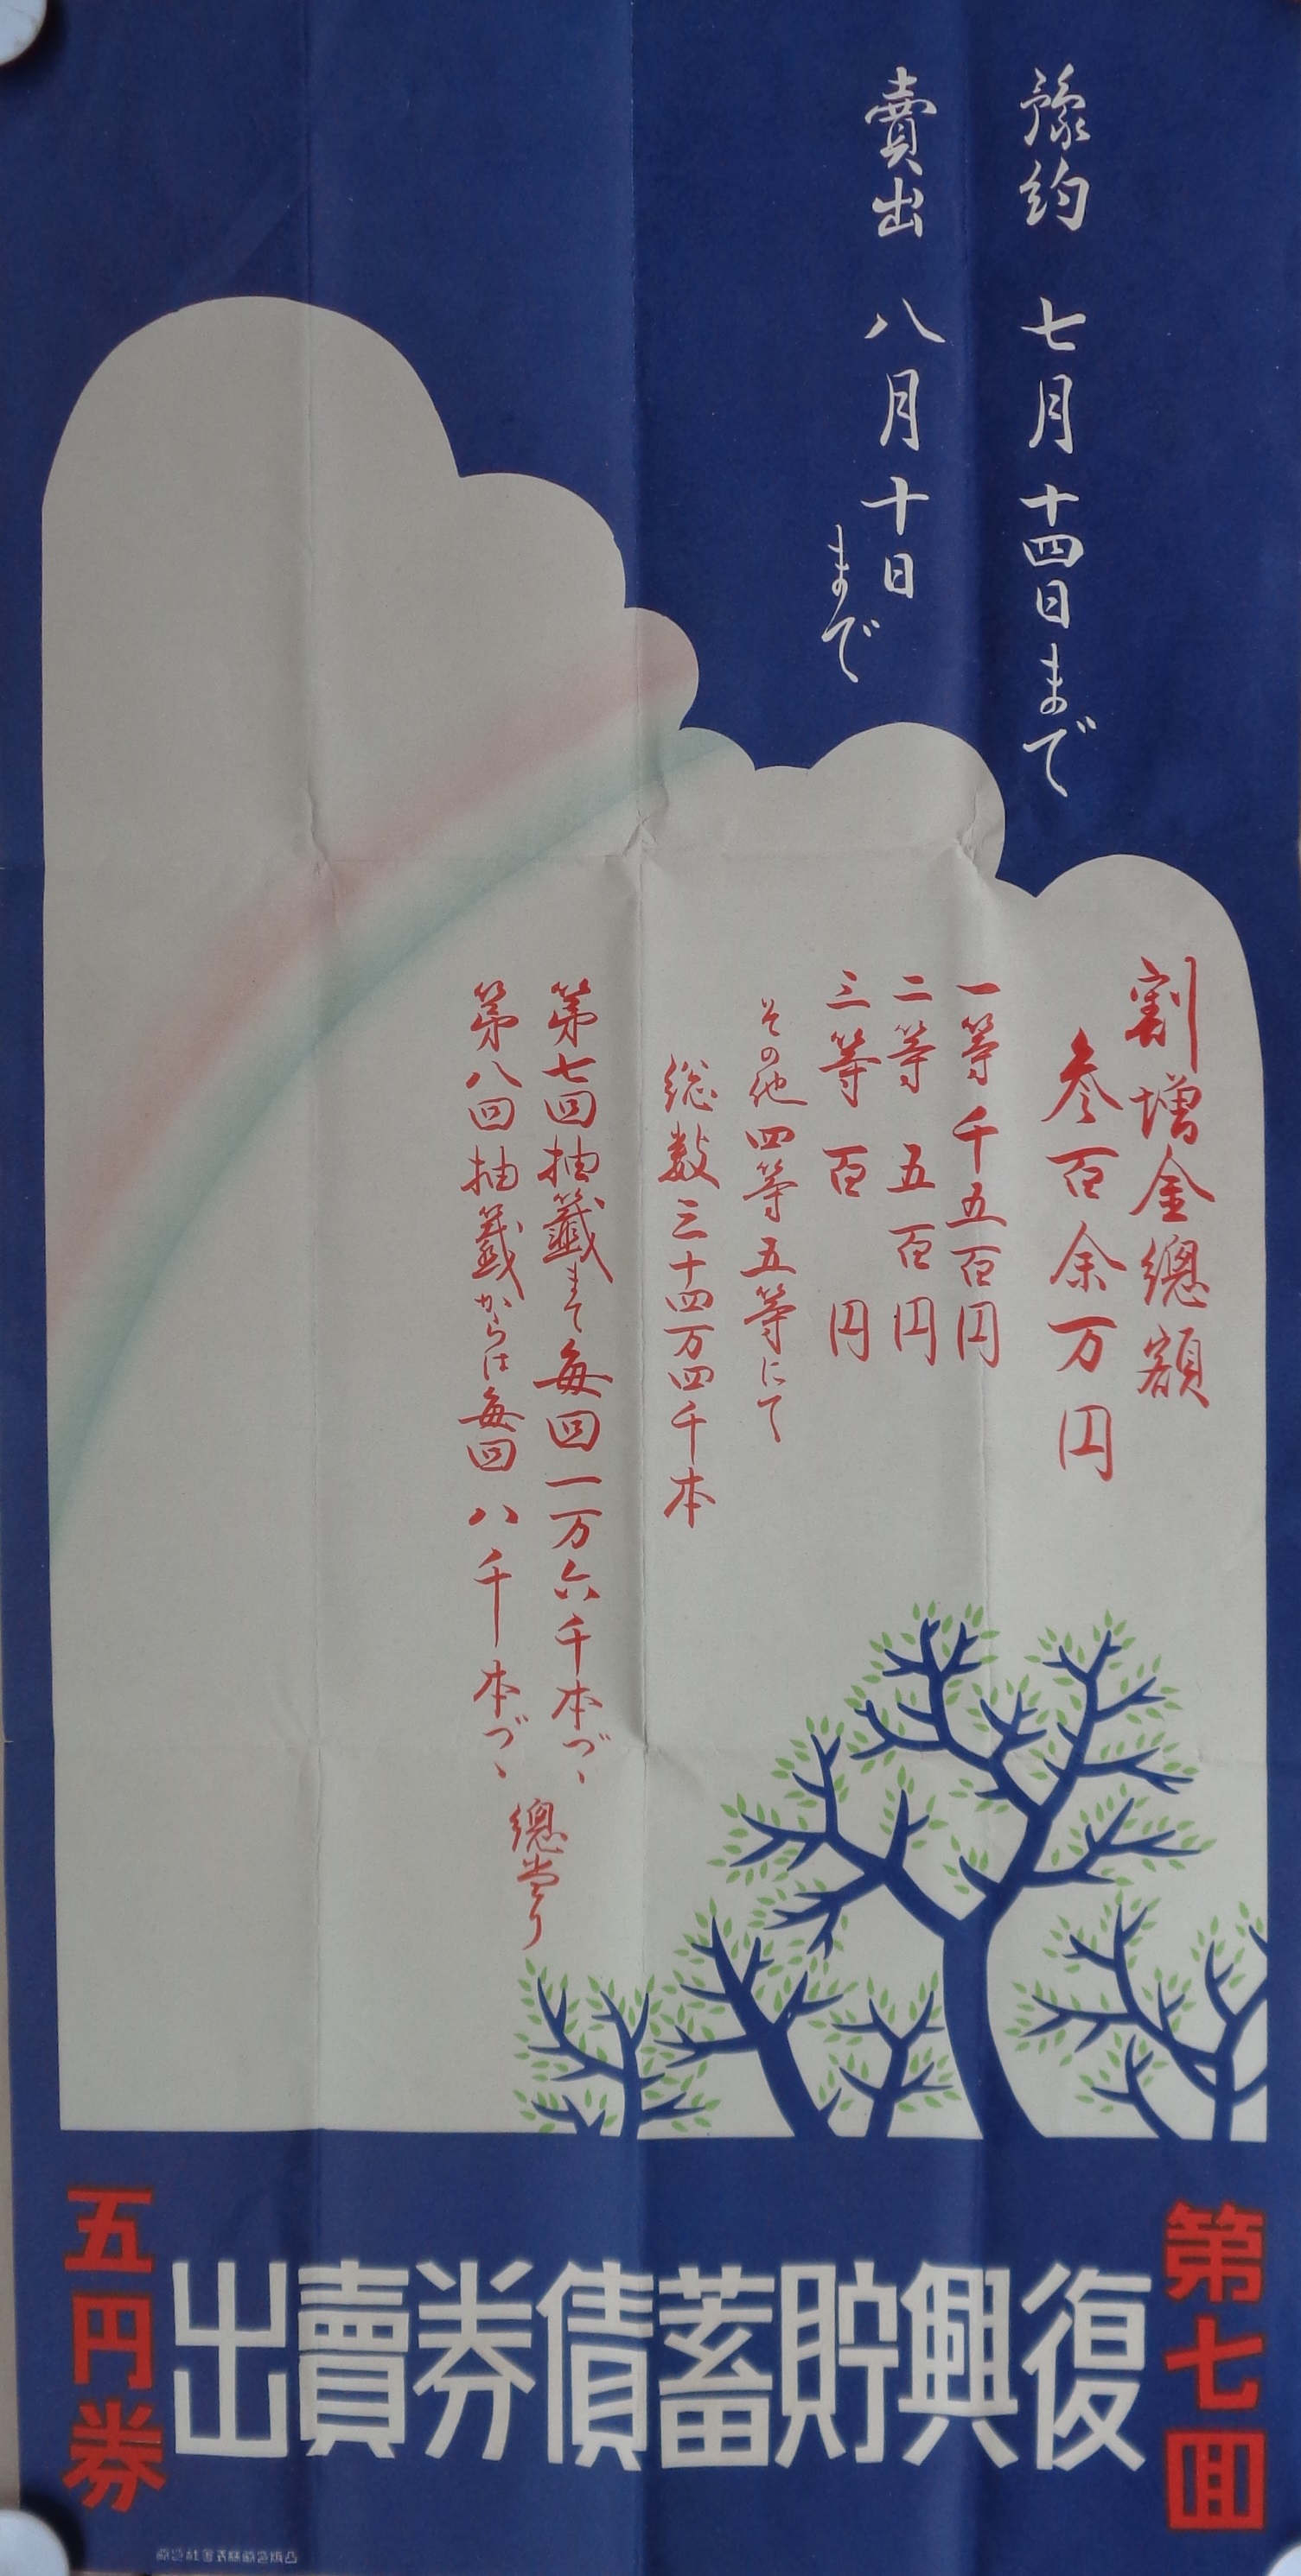 豫約 七月十四日まで
賣出 八月十日まで
割增金總額
参百余万円
一等 千五百円
二等 五百円
三等 百円
その他四等五等にて
総数三十四万四千本
第七回抽籤まで毎回一万六千本づゝ
第八回抽籤からは毎回八千本づゝ
總當り
第七回
復興貯蓄債券賣出
五円券